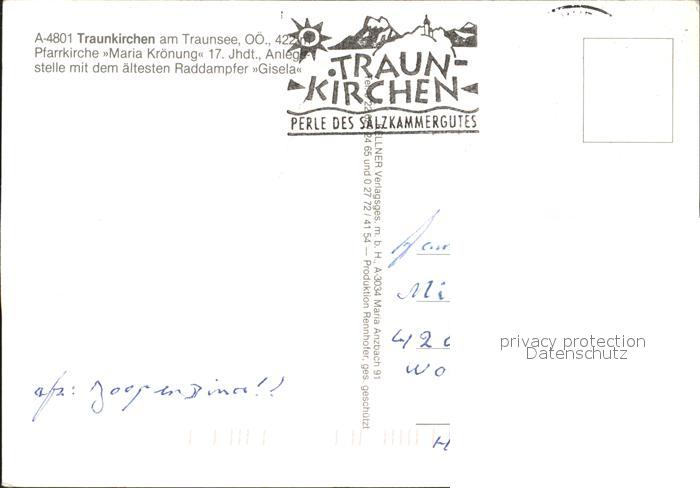 A-4801 Traunkirchen am Traunsee, OÖ., 422 m
Pfarrkirche »Maria Krönung« 17. Jhdt., Anlege-
stelle mit dem ältesten Raddampfer »Gisela«
TRAUN-
KIRCHEN
PERLE DES SALZKAMMERGUTES
Verlagsges. m. b. H., A-3034 Maria Anzbach 91
24 65 und 0 27 72 / 41 54 — Produktion Rennhofer, ges. geschützt
Mi
420
wo
H
privacy protection
Datenschutz